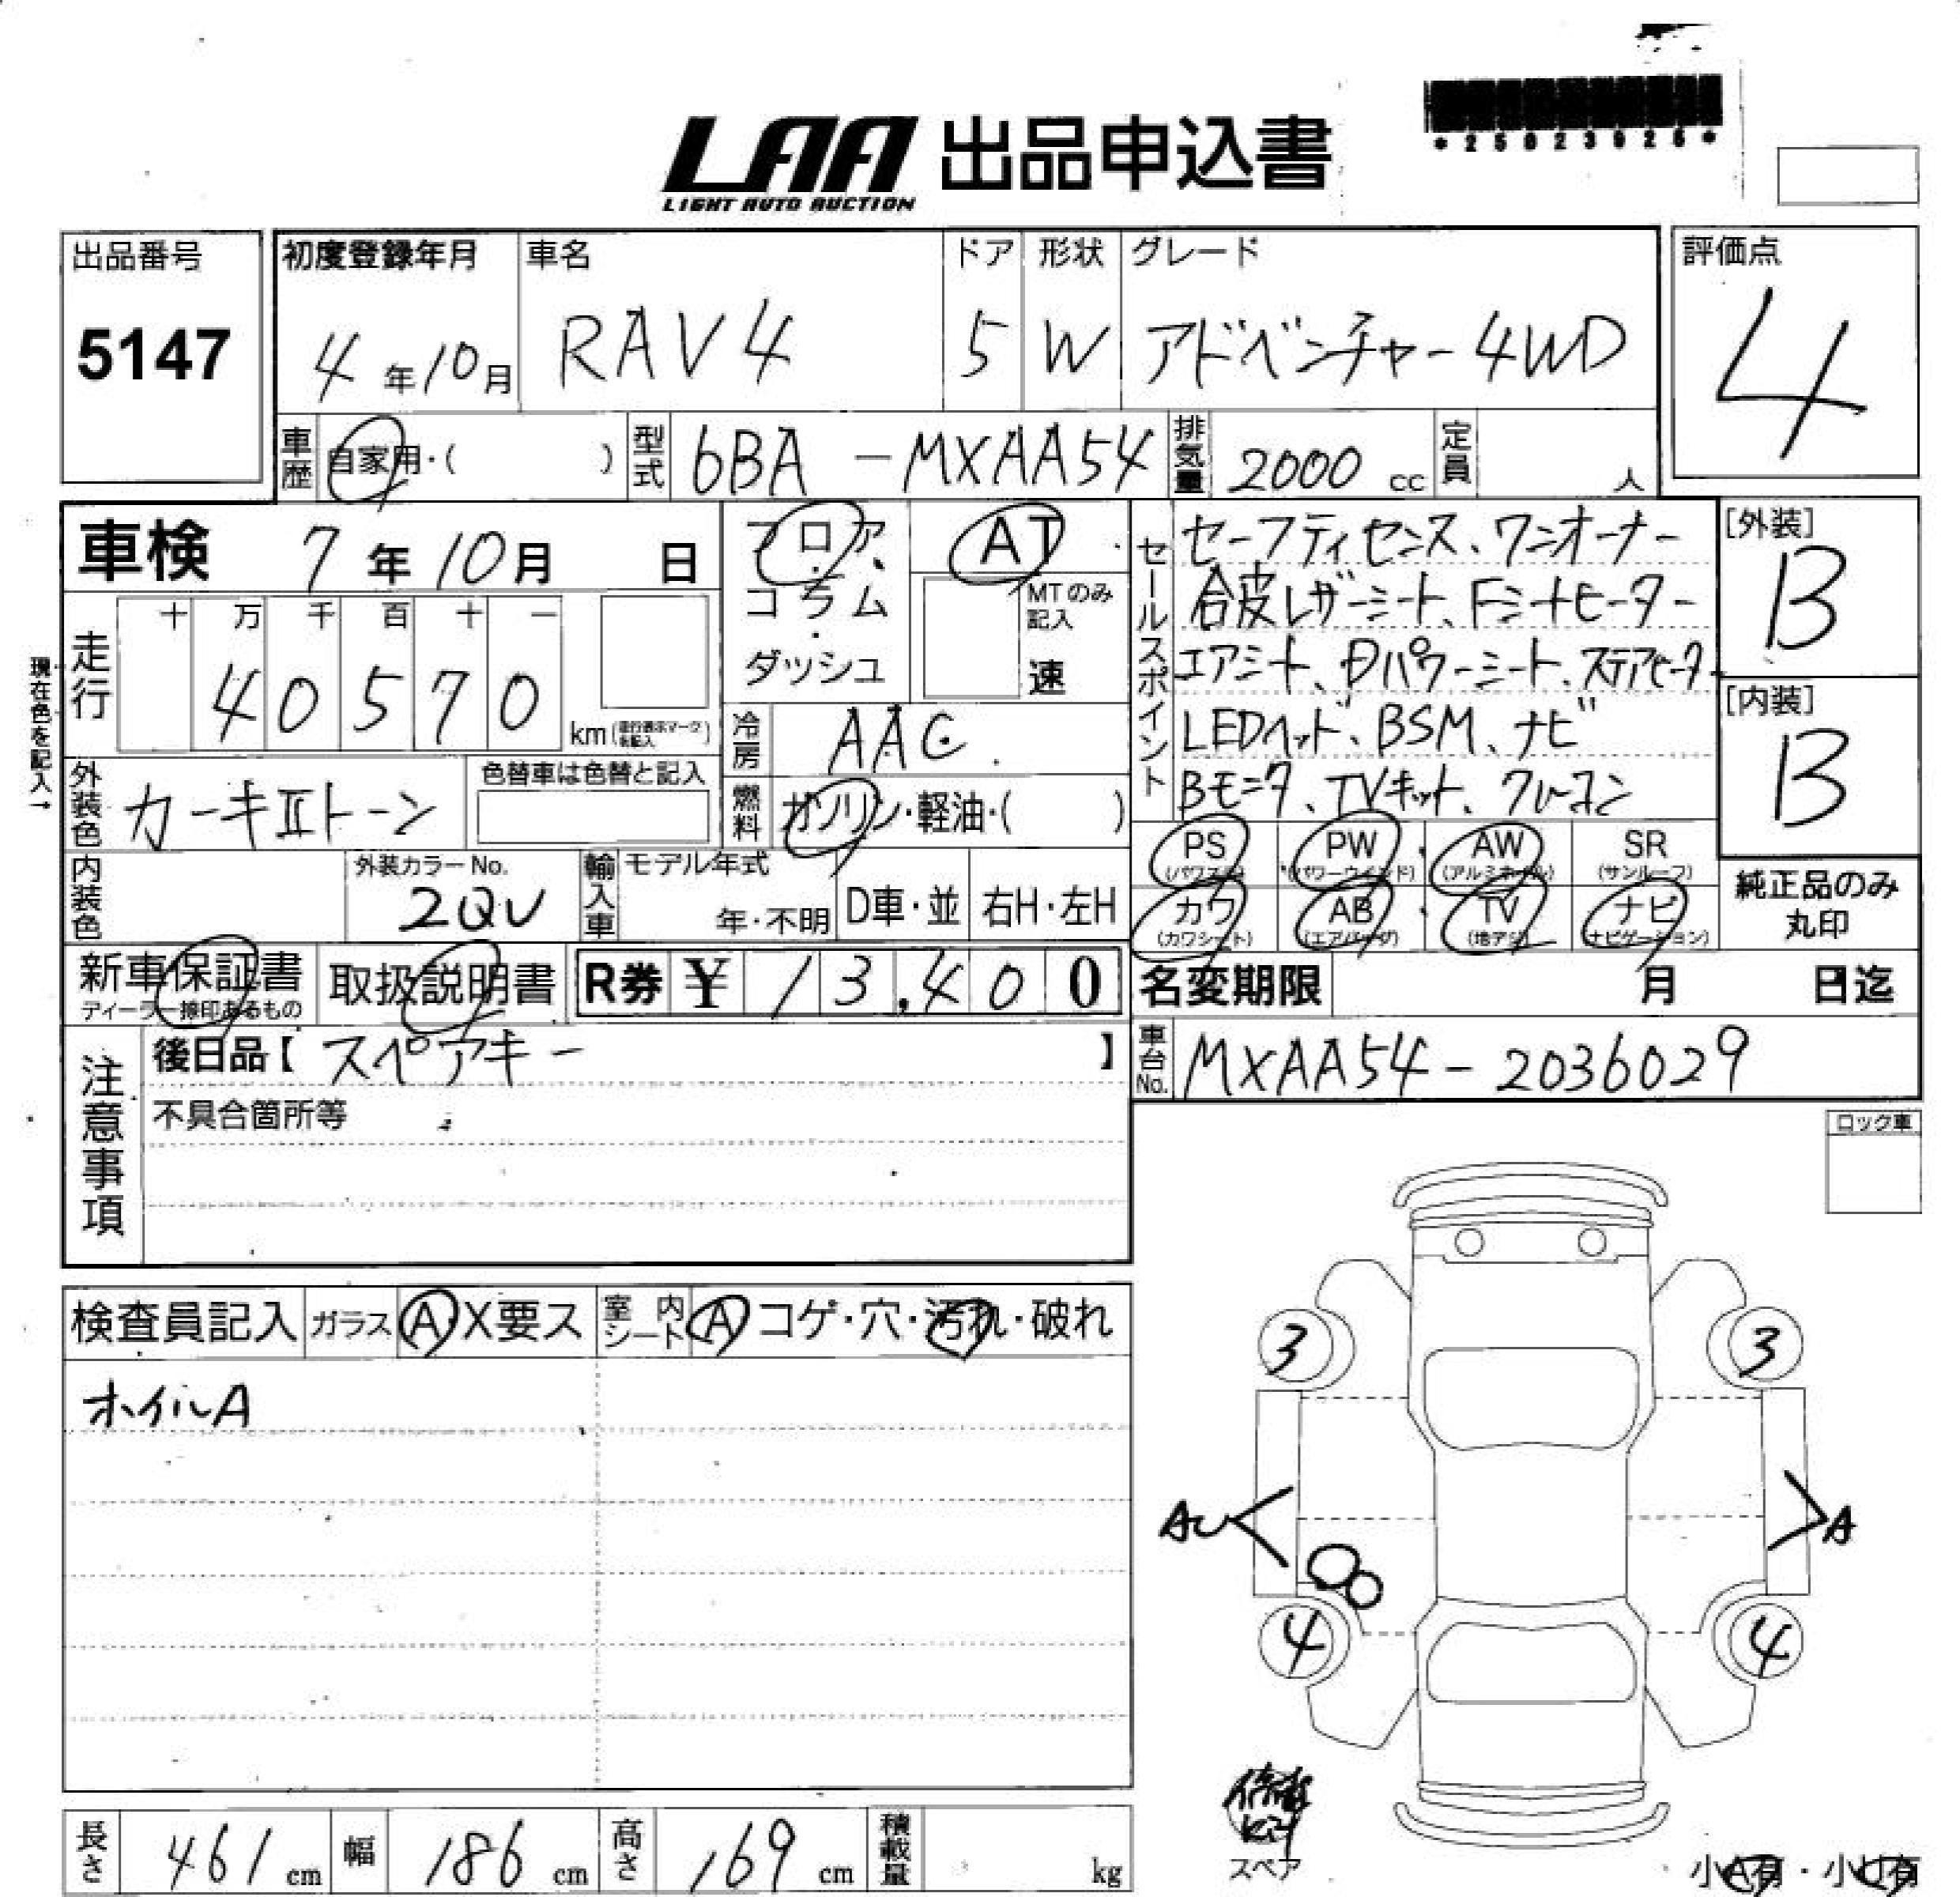 LAA 出品申込書
LIGHT AUTO AUCTION
*25023926*
出品番号
5147
初度登録年月
4年10月
車名
RAV4
ドア
5
形状
W
グレード
アドベンチャー4WD
評価点
4
車歴
自家用・( )
型式
6BA-MXAA54
排気量
2000 cc
定員
人
車検 7年10月 日
フロア
コラム
ダッシュ
AT
MTのみ
記入
速
セールスポイント
セーフティセンス、ワンオーナー
合皮レザーシート、Fシートヒーター
エアシート、Dパワーシート、ステアヒーター
LEDヘッド、BSM、ナビ
Bモニタ、TVキット、クルコン
[外装]
B
[内装]
B
現在色を記入→
走行
十 万 千 百 十 一
4 0 5 7 0
km(走行表示マークを記入)
冷房
AAC
外装色
カーキⅡトーン
色替車は色替と記入
燃料
ガソリン・軽油・( )
内装色
外装カラーNo.
2QU
輸入車
モデル年式
年・不明
D車・並
右H・左H
PS
(パワステ)
PW
(パワーウインド)
AW
(アルミホイル)
SR
(サンルーフ)
カワ
(カワシート)
AB
(エアバッグ)
TV
(地デジ)
ナビ
(ナビゲーション)
純正品のみ
丸印
新車保証書
ディーラー捺印あるもの
取扱説明書
R券 ¥13,400
名変期限 月 日迄
車台No.
MXAA54-2036029
注意事項
後日品【スペアキー】
不具合箇所等
ロック車
検査員記入
ガラス
A・X要ス
室内シート
A コゲ・穴・汚れ・破れ
ホイルA
3
3
AU
A
4
4
スペア
小A有・小U有
長さ
461 cm
幅
186 cm
高さ
169 cm
積載量
kg